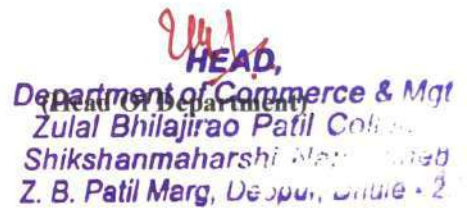 HEAD,
Department of Commerce & Mgt
(Head Of Department)
Zulal Bhilajirao Patil
Shikshanmaharshi
Z. B. Patil Marg, Deopur, Dhule - 2